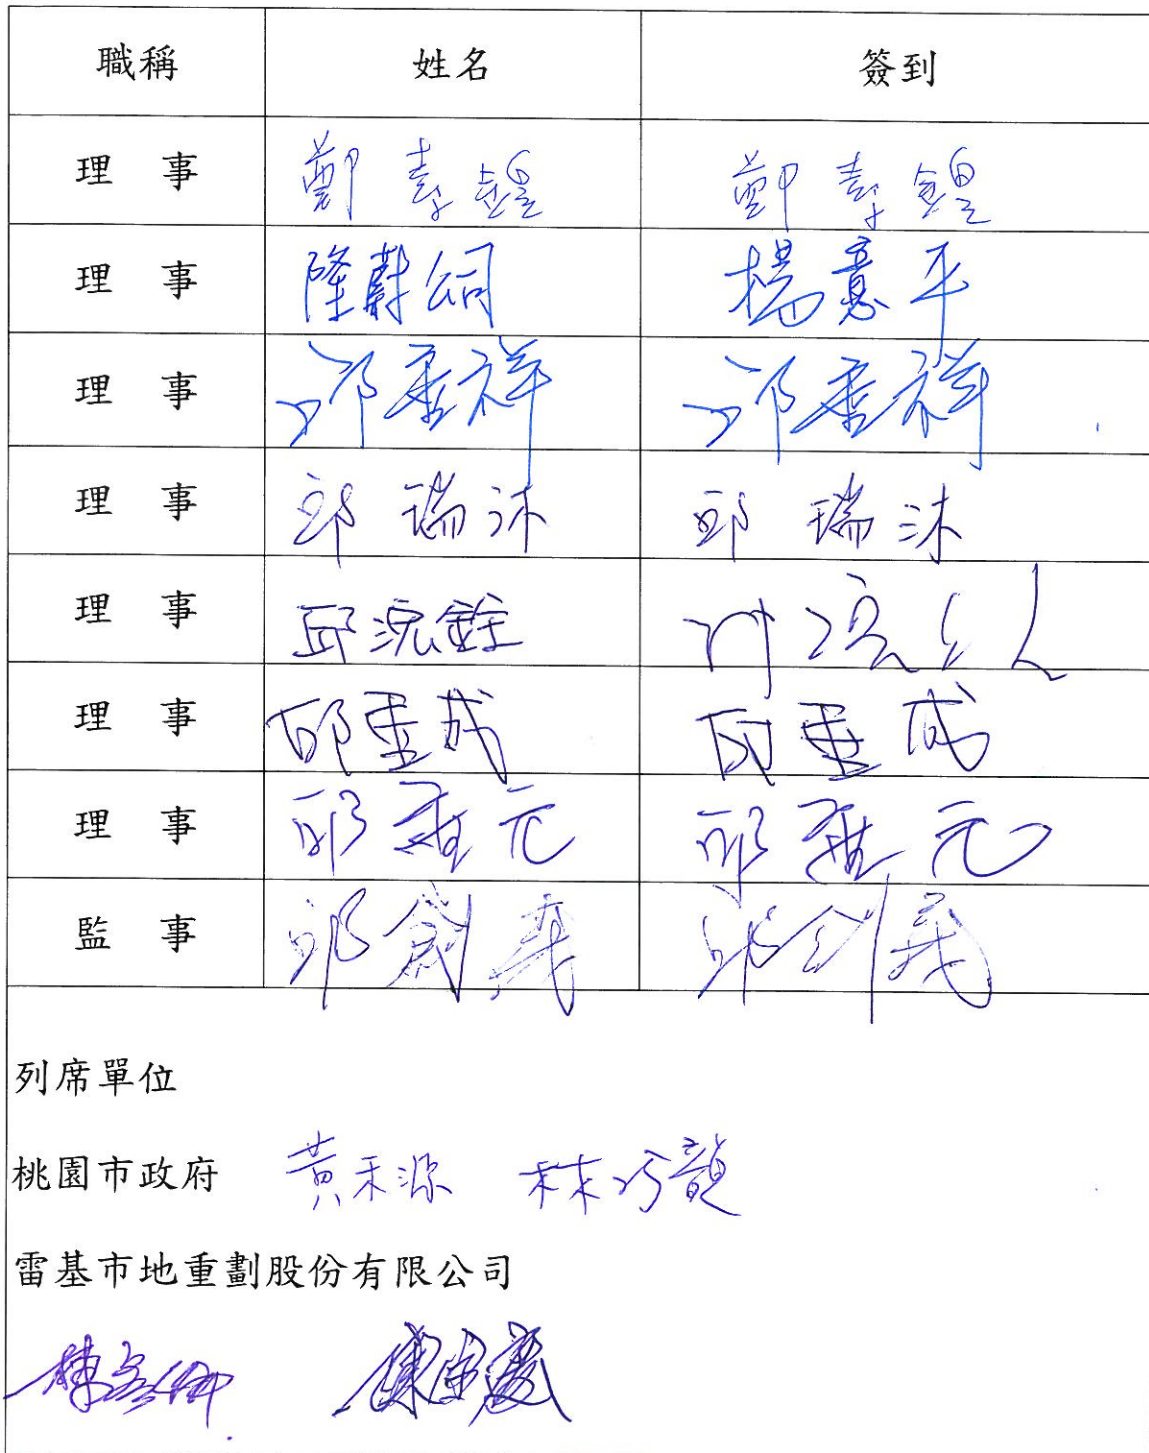 職稱 姓名 簽到
理 事 鄭 鄭
理 事 隆蔚公司 楊意平
理 事 邱垂祥 邱垂祥
理 事 邱瑞沐 邱瑞沐
理 事 邱浣銓
理 事 邱垂成 邱垂成
理 事 邱垂元 邱垂元
監 事 邱創 邱創
列席單位
桃園市政府 黃禾源 林巧
雷基市地重劃股份有限公司